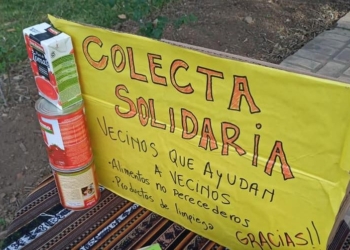 COLECTA
SOLIDARIA
VECINOS QUE AYUDAN
A VECINOS
- Alimentos no perecederos
- Productos de limpieza
GRACIAS!!